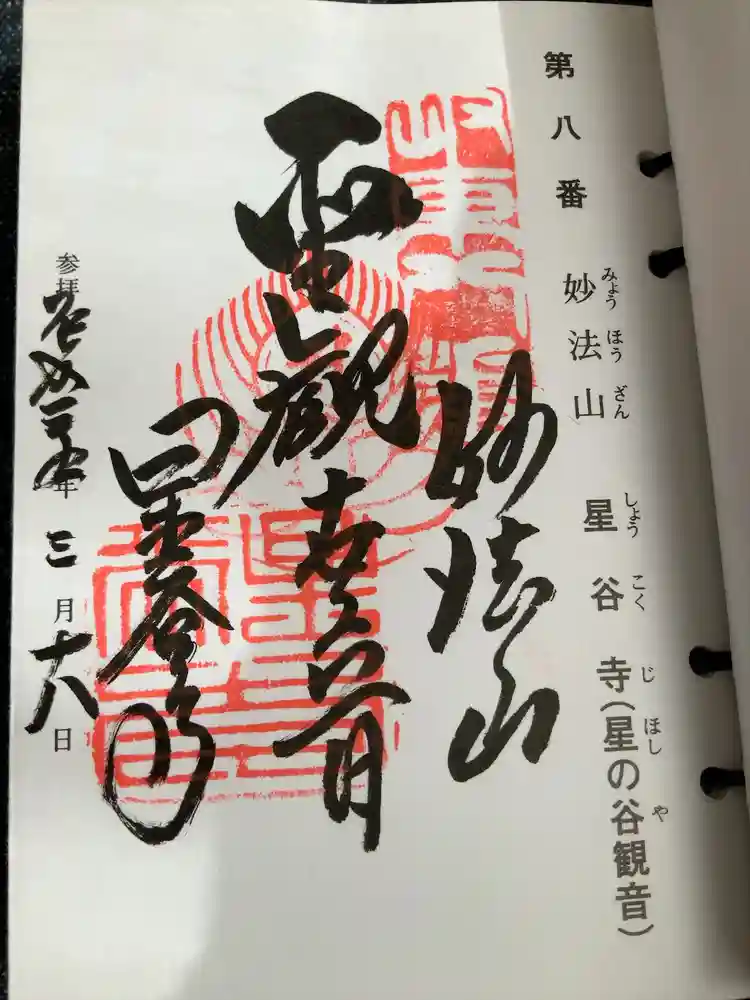 第八番 妙法山 星谷寺(星の谷観音)
みょう ほう ざん しょう こく じ ほし や
妙法山
聖観世音
星谷寺
参拝 年三月十八日